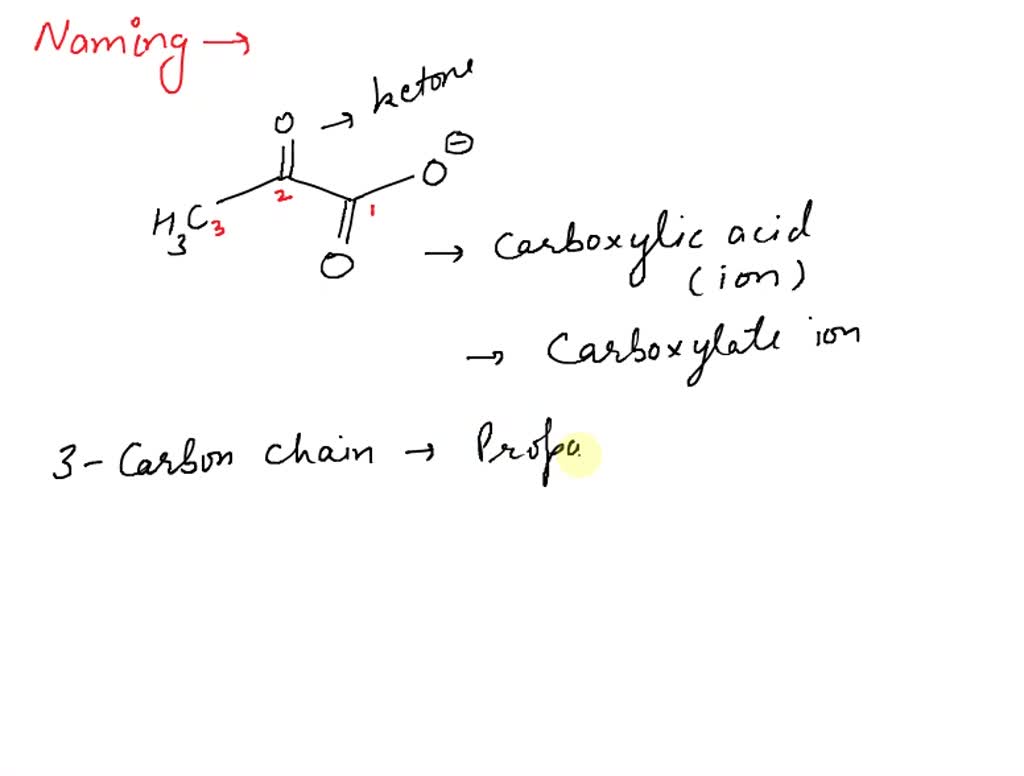 Naming →
O → ketone
O ⊖
H3C 3 2 1
O
→ Carboxylic acid
(ion)
→ Carboxylate ion
3 - Carbon chain → Propa